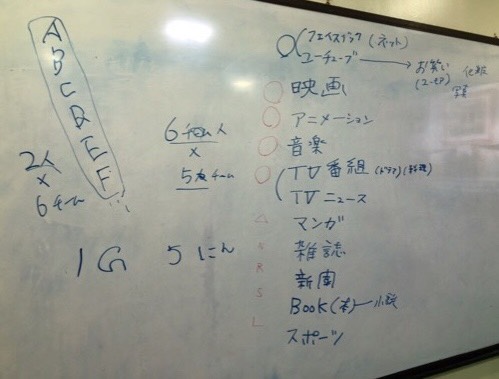 A
B
C
D
E
F
2人
×
6チーム
6チーム
×
5チーム
1G 5にん
フェイスブック (ネット)
ユーチューブ → お笑い
(ユーモア)
映画
アニメーション
音楽
TV番組 (ドラマ)
TVニュース
マンガ
雑誌
新聞
Book (本) — 小説
スポーツ
R
S
L